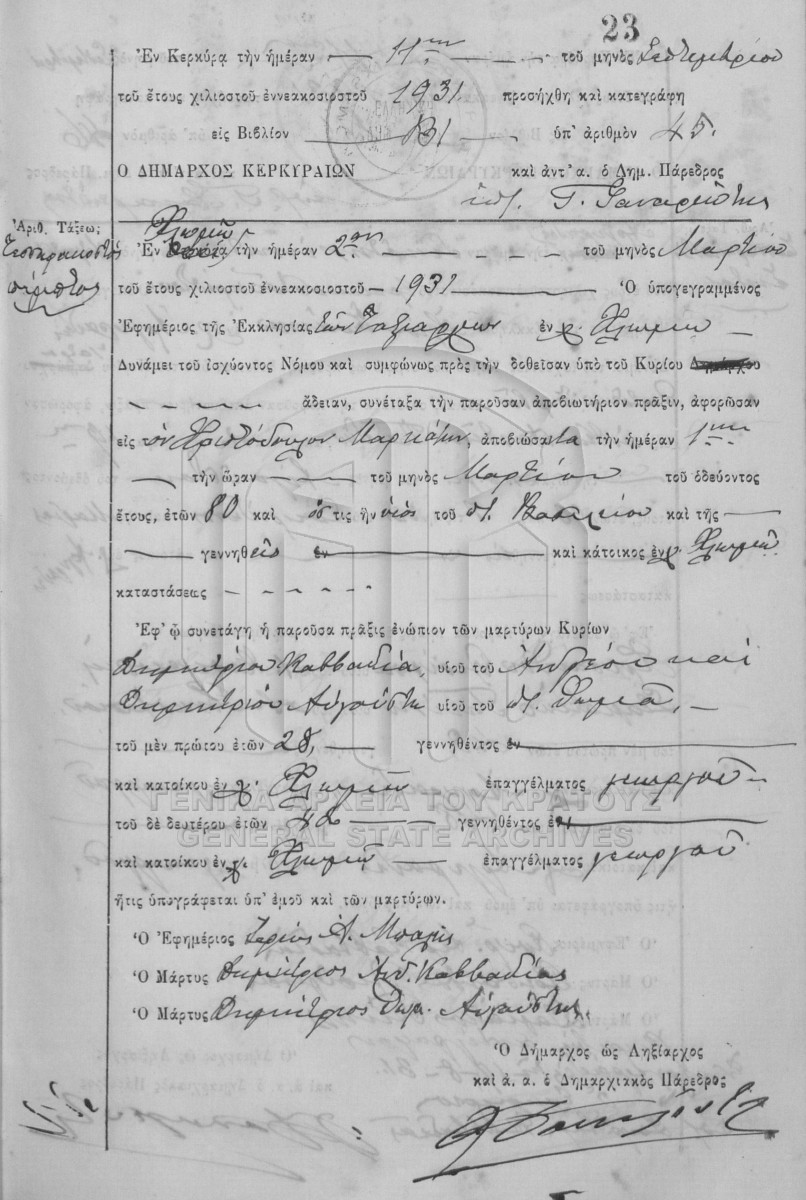 23
Ἐν Κερκύρᾳ τὴν ἡμέραν 11ην τοῦ μηνὸς Σεπτεμβρίου
τοῦ ἔτους χιλιοστοῦ ἐννεακοσιοστοῦ 1931 προσήχθη καὶ κατεγράφη
εἰς Βιβλίον 131 ὑπ' ἀριθμὸν 45.
Ο ΔΗΜΑΡΧΟΣ ΚΕΡΚΥΡΑΙΩΝ καὶ ἀντ'α. ὁ Δημ. Πάρεδρος
Γ.
Ἀριθ. Τάξεως
Τεσσαρακοστὸς
πέμπτος
Χλωμῷ
Ἐν τὴν ἡμέραν 2αν τοῦ μηνὸς Μαρτίου
τοῦ ἔτους χιλιοστοῦ ἐννεακοσιοστοῦ 1931 Ὁ ὑπογεγραμμένος
Ἐφημέριος τῆς Ἐκκλησίας τῶν Ταξιαρχῶν ἐν χ. Χλωμῷ
Δυνάμει τοῦ ἰσχύοντος Νόμου καὶ συμφώνως πρὸς τὴν δοθεῖσαν ὑπὸ τοῦ Κυρίου Δημάρχου
ἄδειαν, συνέταξα τὴν παροῦσαν ἀποβιωτήριον πρᾶξιν, ἀφορῶσαν
εἰς τὸν Χριστόδουλον Μαρτιάτην, ἀποβιώσαντα τὴν ἡμέραν 1ην
τὴν ὥραν τοῦ μηνὸς Μαρτίου τοῦ ὁδεύοντος
ἔτους, ἐτῶν 80 καὶ ὅστις ἦν υἱὸς τοῦ π. Βασιλείου καὶ τῆς
γεννηθεὶς ἐν καὶ κάτοικος ἐν χ. Χλωμῷ
καταστάσεως
Ἐφ' ᾧ συνετάγη ἡ παροῦσα πρᾶξις ἐνώπιον τῶν μαρτύρων Κυρίων
Δημητρίου Καββαδία, υἱοῦ τοῦ Ἀνδρέου καὶ
Δημητρίου Αὐγούστη υἱοῦ τοῦ π. Θωμᾶ,
τοῦ μὲν πρώτου ἐτῶν 28, γεννηθέντος ἐν
καὶ κατοίκου ἐν χ. Χλωμῷ ἐπαγγέλματος γεωργοῦ
τοῦ δὲ δευτέρου ἐτῶν γεννηθέντος ἐν
καὶ κατοίκου ἐν χ. Χλωμῷ ἐπαγγέλματος γεωργοῦ
ἥτις ὑπογράφεται ὑπ' ἐμοῦ καὶ τῶν μαρτύρων.
Ὁ Ἐφημέριος Ἱερεὺς Α.
Ὁ Μάρτυς Δημήτριος Ἀνδ. Καββαδίας
Ὁ Μάρτυς Δημήτριος Θωμ. Αὐγούστης
Ὁ Δήμαρχος ὡς Ληξίαρχος
καὶ ἀ. α. ὁ Δημαρχιακὸς Πάρεδρος
ΓΕΝΙΚΑ ΑΡΧΕΙΑ ΤΟΥ ΚΡΑΤΟΥΣ
GENERAL STATE ARCHIVES